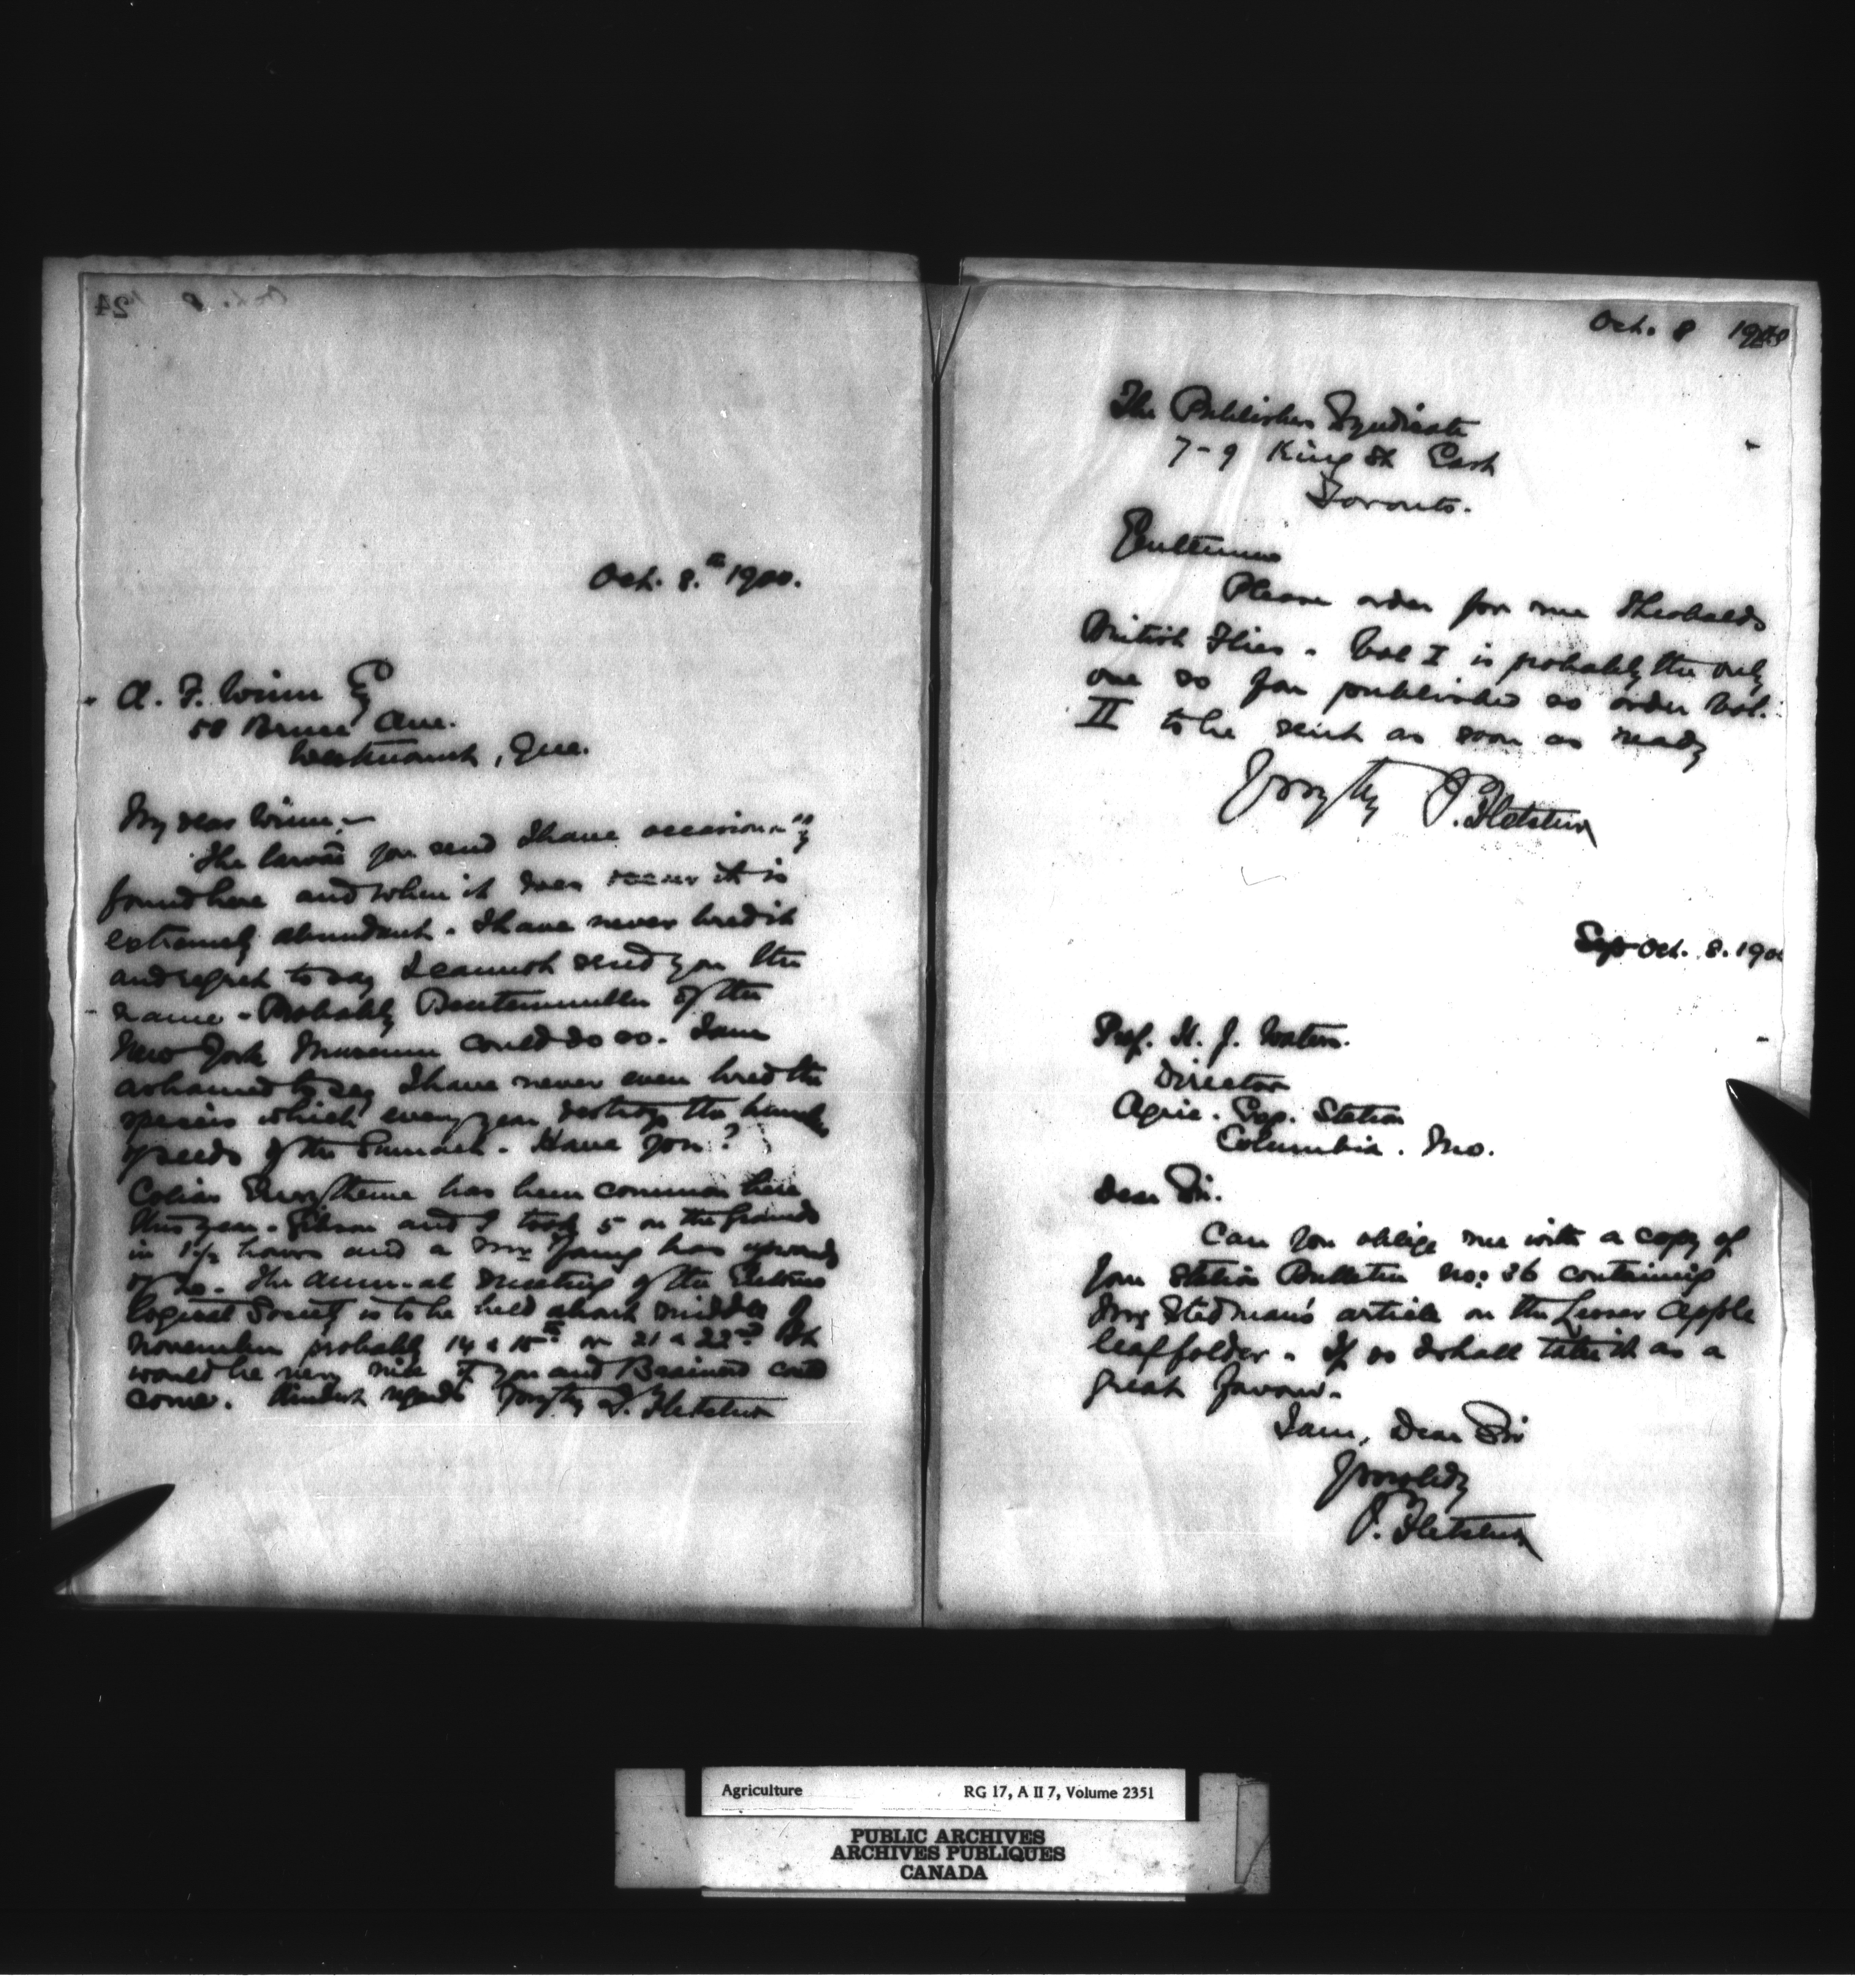 Oct. 8.th 1900.
A. F. Winn Esq
58 Bruce Ave.
Westmount, Que.
My dear Winn,—
The larvae you send I have occasionally
found here and when it does occur it is
extremely abundant. I have never bred it
and regret to say I cannot send you the
name. Probably Beutenmuller of the
New York Museum could do so. I am
ashamed to say I have never even bred the
species which every year destroys the
seeds of the Sumach. Have you?
Colias Eurytheme has been common here
this year. Gibson and I took 5 on the grounds
in 1½ hours and a Mr Young has upwards
of 20. The annual meeting of the Entomo
logical Society is to be held about middle of
November probably 14 & 15th or 21 & 22nd It
would be very nice if you and Brainerd could
come. Kindest regards Yrs truly J. Fletcher
Oct. 8
The Publishers Syndicate
7-9 King St East
Toronto.
Gentlemen
Please order for me Theobalds
British Flies. Vol I is probably the only
one so far published so order Vol.
II to be sent as soon as ready
Yrs truly J. Fletcher
Sep Oct. 8. 1900
Prof. H. J. Waters.
Director
Agric. Exp. Station
Columbia. Mo.
Dear Sir.
Can you oblige me with a copy of
your Station Bulletin No: 36 containing
Stedman's article on the Lesser Apple
leaf folder. If so I shall take it as a
great favour.
I am, Dear Sir
Yours obdly
J. Fletcher
Agriculture RG 17, A II 7, Volume 2351
PUBLIC ARCHIVES
ARCHIVES PUBLIQUES
CANADA